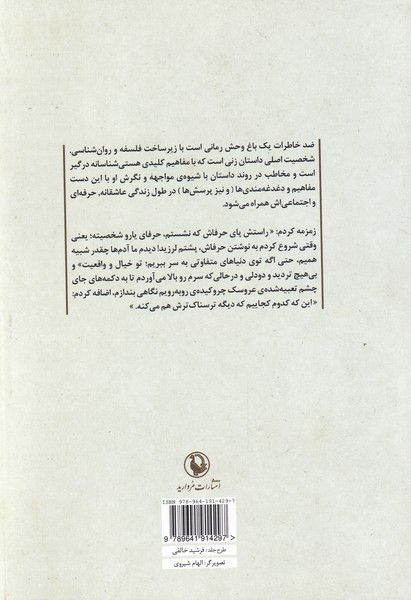 ضد خاطرات یک باغ وحش رمانی است با زیرساخت فلسفه و روان‌شناسی.
شخصیت اصلی داستان زنی است که با مفاهیم کلیدی هستی‌شناسانه درگیر
است و مخاطب در روند داستان با شیوه‌ی مواجهه و نگرش او با این دست
مفاهیم و دغدغه‌مندی‌ها ( و نیز پرسش‌ها ) در طول زندگی عاشقانه، حرفه‌ای
و اجتماعی‌اش همراه می‌شود.
زمزمه کردم: « راستش پای حرفاش که نشستم، حرفای یارو شخصیته؛ یعنی
وقتی شروع کردم به نوشتن حرفاش، پشتم لرزید! دیدم ما آدم‌ها چقدر شبیه
همیم، حتی اگه توی دنیاهای متفاوتی به سر ببریم؛ تو خیال و واقعیت» و
بی‌هیچ تردید و دودلی و درحالی‌که سرم رو بالا می‌آوردم تا به دکمه‌های جای
چشم تعبیه‌شده‌ی عروسک چروکیده‌ی روبه‌رویم نگاهی بندازم، اضافه کردم:
«این که کدوم کجاییم که دیگه ترسناک‌ترش هم می‌کنه. »
انتشارات مروارید
ISBN 978-964-191-429-7
9 789641 914297
طرح جلد: فرشید خالقی
تصویرگر: الهام شیروی